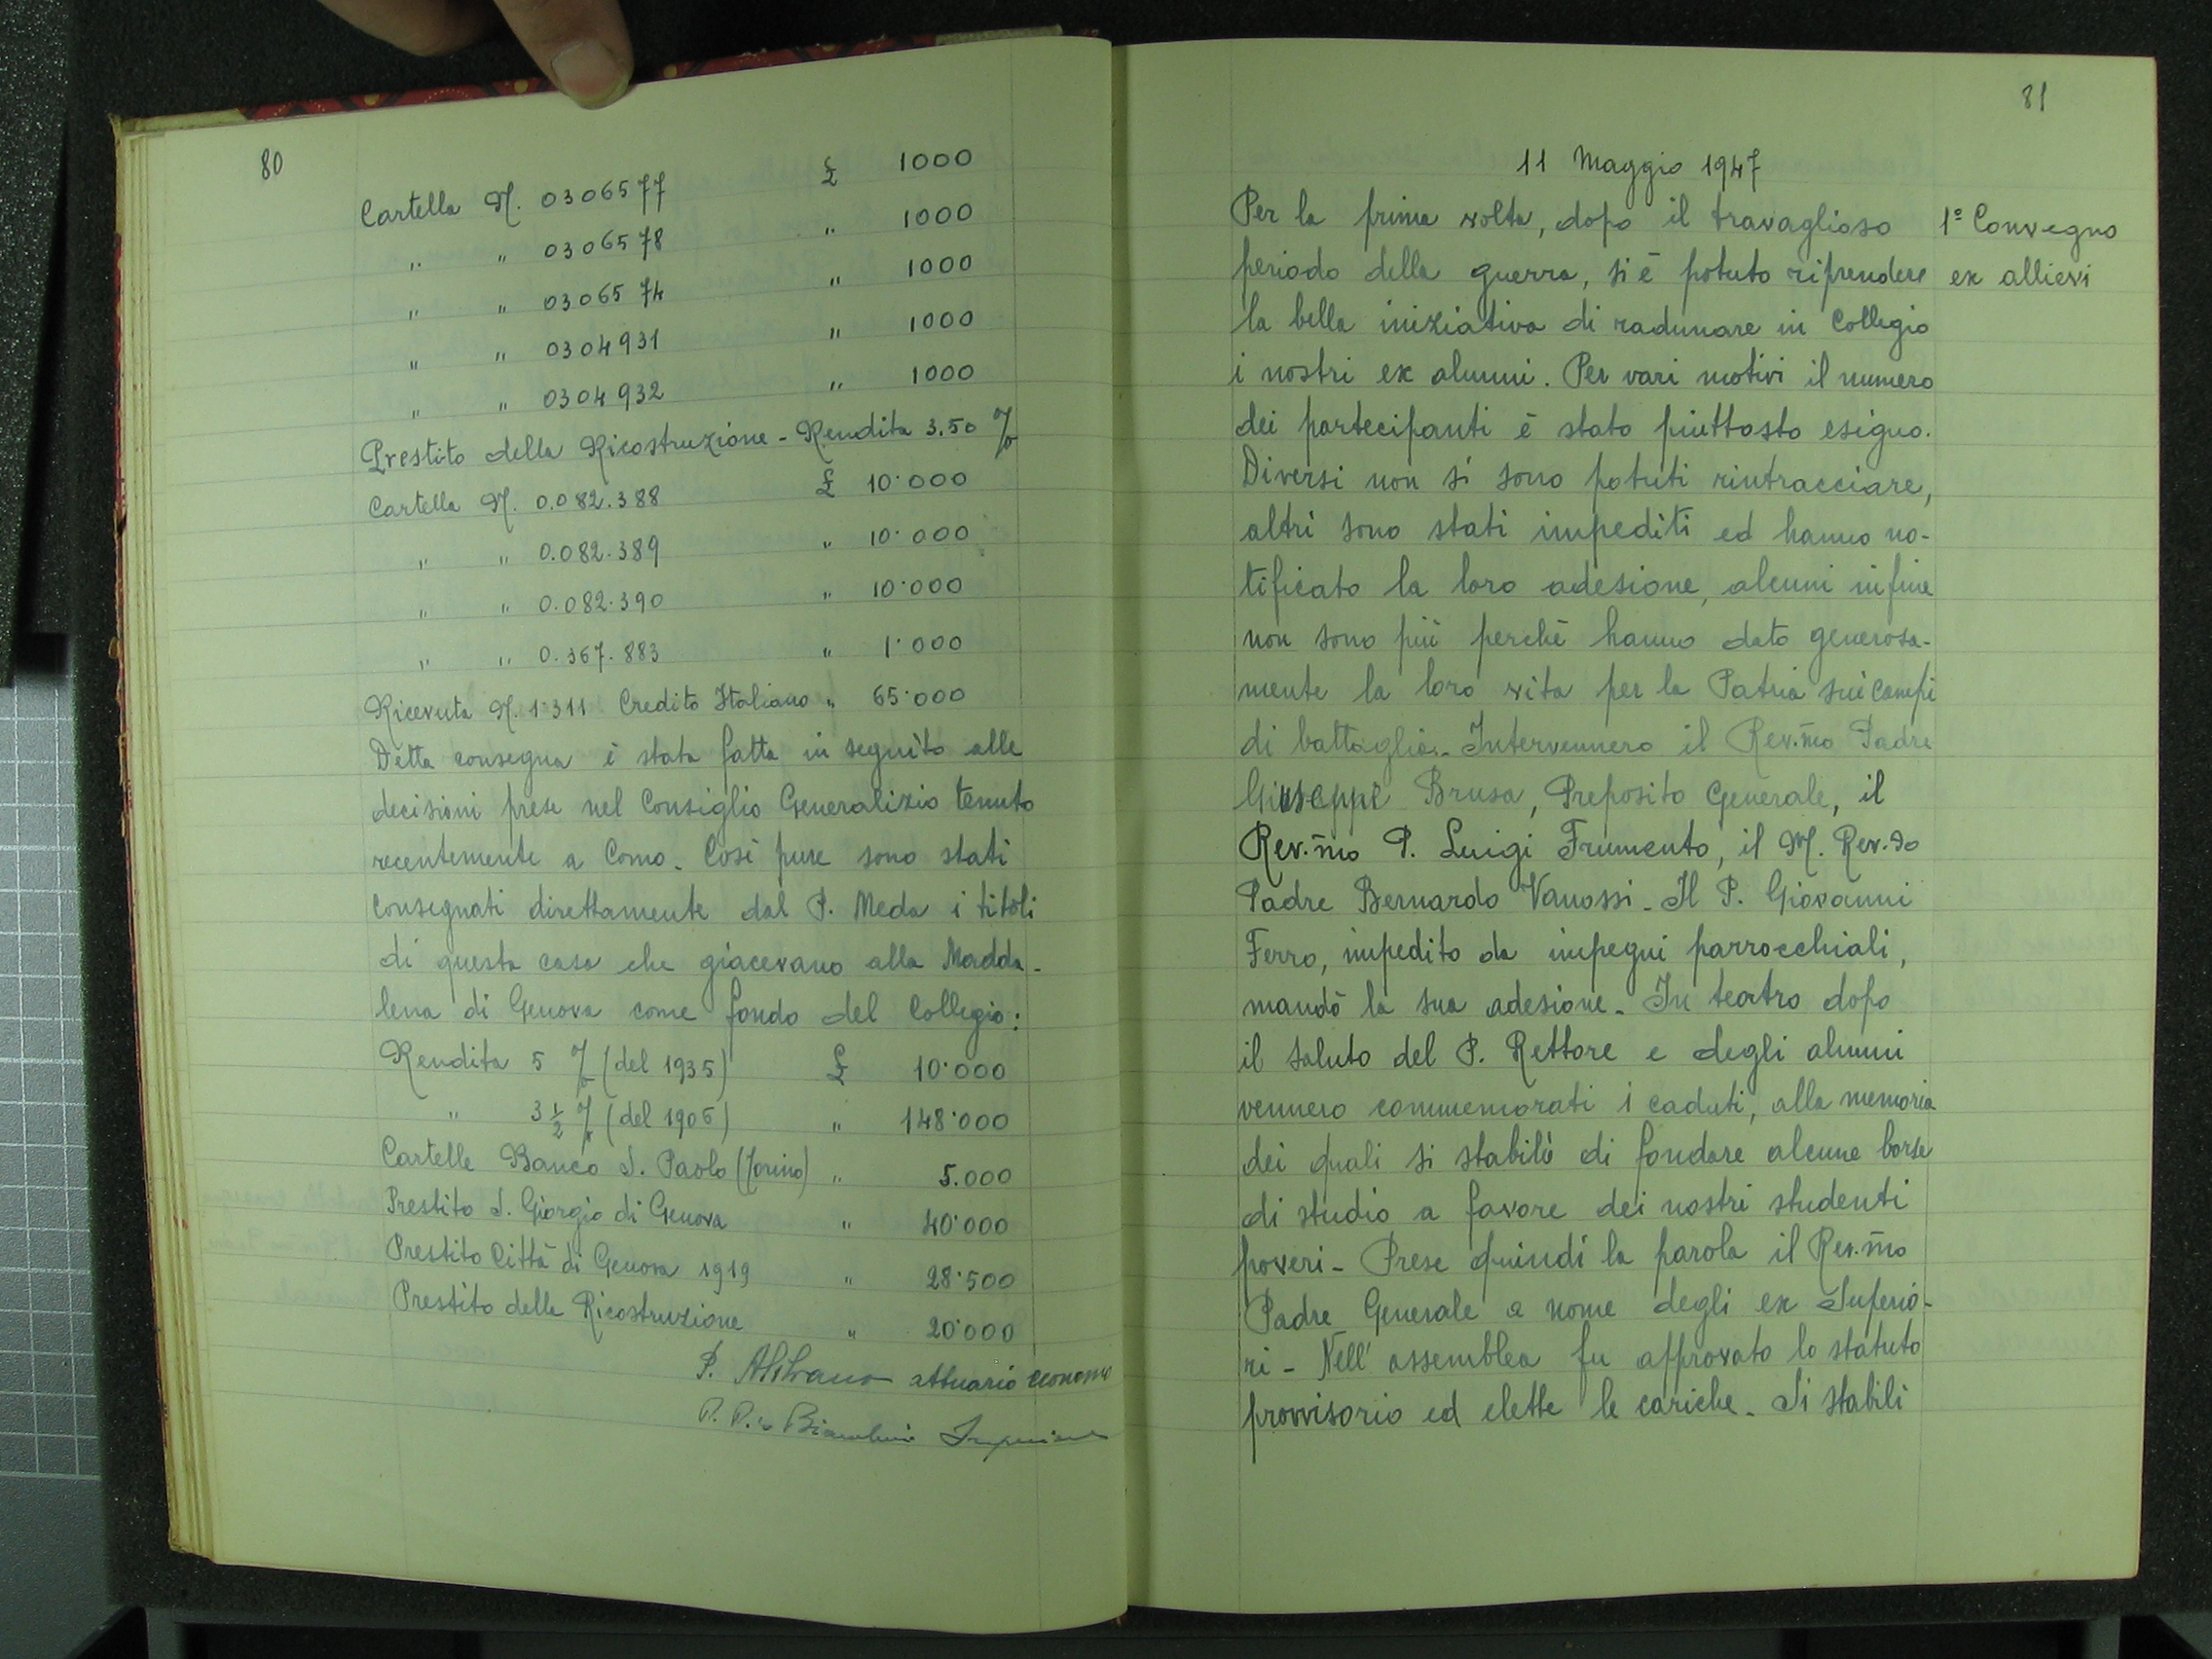 80
Cartella N. 0306577 £ 1000
" " 0306578 " 1000
" " 0306574 " 1000
" " 0304931 " 1000
" " 0304932 " 1000
Prestito della Ricostruzione - Rendita 3.50 %
Cartella N. 0.082.388 £ 10.000
" " 0.082.389 " 10.000
" " 0.082.390 " 10.000
" " 0.367.883 " 1.000
Ricevuta N. 1.311 Credito Italiano " 65.000
Detta consegna è stata fatta in seguito alle
decisioni prese nel Consiglio Generalizio tenuto
recentemente a Como. Così pure sono stati
consegnati direttamente dal P. Meda i titoli
di questa casa che giacevano alla Madda-
lena di Genova come fondo del Collegio:
Rendita 5 % (del 1935) £ 10.000
" 3 1/2 % (del 1906) " 148.000
Cartelle Banco S. Paolo (Torino) " 5.000
Prestito S. Giorgio di Genova " 40.000
Prestito Città di Genova 1919 " 28.500
Prestito della Ricostruzione " 20.000
P. attuario economo
P. Pio Bianchini Superiore
81
11 Maggio 1947
1º Convegno
ex allievi
Per la prima volta, dopo il travaglioso
periodo della guerra, si è potuto riprendere
la bella iniziativa di radunare in Collegio
i nostri ex alunni. Per vari motivi il numero
dei partecipanti è stato piuttosto esiguo.
Diversi non si sono potuti rintracciare,
altri sono stati impediti ed hanno no-
tificato la loro adesione, alcuni infine
non sono più perchè hanno dato generosa-
mente la loro vita per la Patria sui campi
di battaglia. Intervennero il Rev.mo Padre
Giuseppe Brusa, Preposito Generale, il
Rev.mo P. Luigi Frumento, il M. Rev.do
Padre Bernardo Vanossi. Il P. Giovanni
Ferro, impedito da impegni parrocchiali,
mandò la sua adesione. In teatro dopo
il saluto del P. Rettore e degli alunni
vennero commemorati i caduti, alla memoria
dei quali si stabilì di fondare alcune borse
di studio a favore dei nostri studenti
poveri - Prese quindi la parola il Rev.mo
Padre Generale a nome degli ex Superio-
ri - Nell' assemblea fu approvato lo statuto
provvisorio ed elette le cariche. Si stabilì